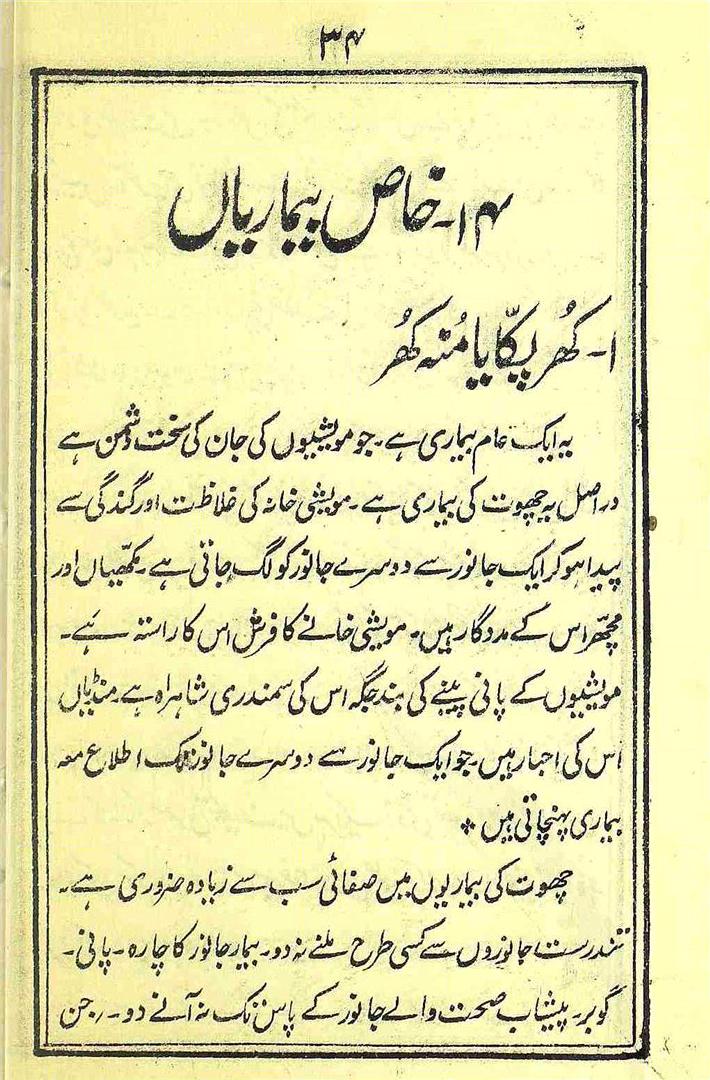 ۳۴
۱۴۔ خاص بیماریاں
۱۔ کھُر پکّا یا مُنہ کھُر
یہ ایک عام بیماری ہے۔ جو مویشیوں کی جان کی سخت دشمن ہے
دراصل یہ چھوت کی بیماری ہے۔ مویشی خانہ کی غلاظت اور گندگی سے
پیدا ہو کر ایک جانور سے دوسرے جانور کو لگ جاتی ہے۔ مکھّیاں اور
مچھّر اس کے مددگار ہیں۔ مویشی خانے کا فرش اس کا راستہ ہے۔
مویشیوں کے پانی پینے کی بند جگہ اس کی سمندری شاہراہ ہے۔ منڈیاں
اس کی اخبار ہیں۔ جو ایک جانور سے دوسرے جانور تک اطلاع معہ
بیماری پہنچاتی ہیں *
چھوت کی بیماریوں میں صفائی سب سے زیادہ ضروری ہے۔
تندرست جانوروں سے کسی طرح ملنے نہ دو۔ بیمار جانور کا چارہ۔ پانی۔
گوبر۔ پیشاب صحت والے جانور کے پاس تک نہ آنے دو۔ جن